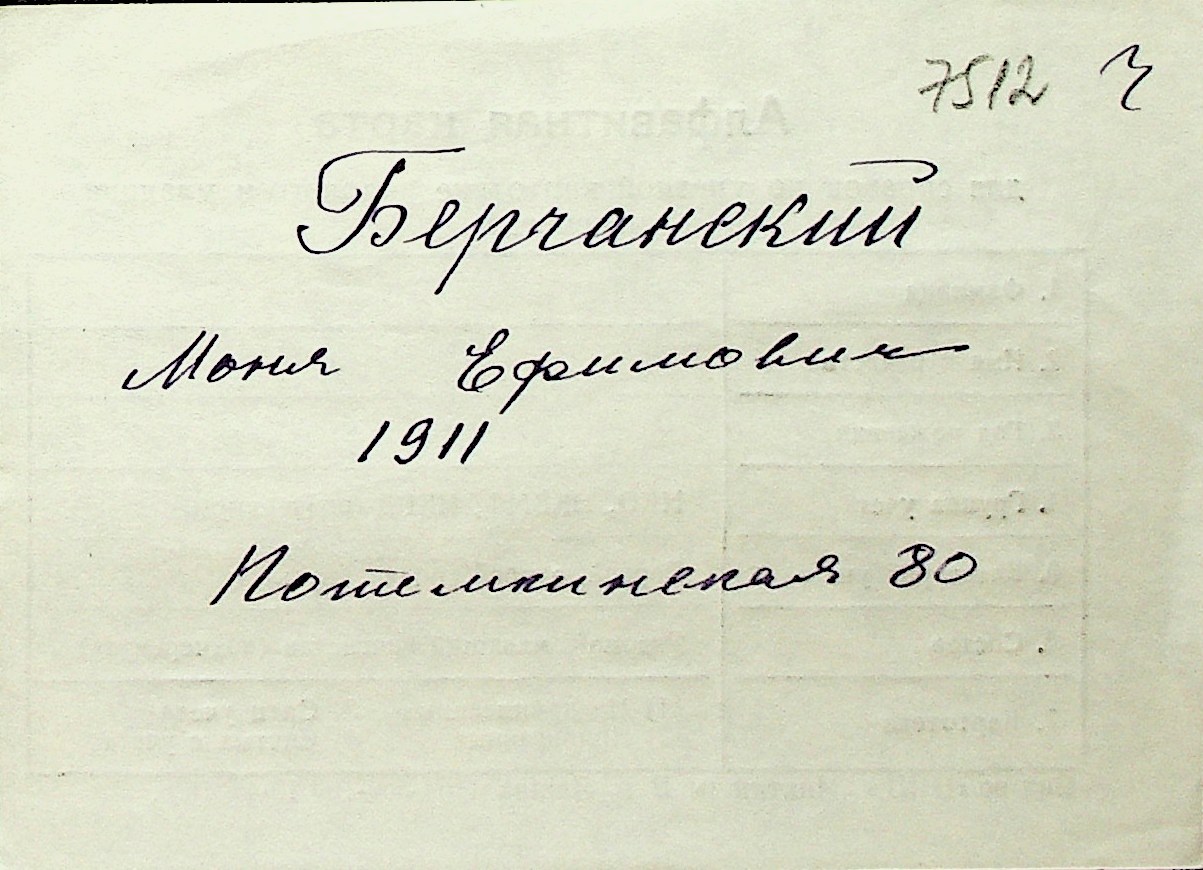 7512 ч
Берчанский
Моня Ефимович
1911
Потемкинская 80